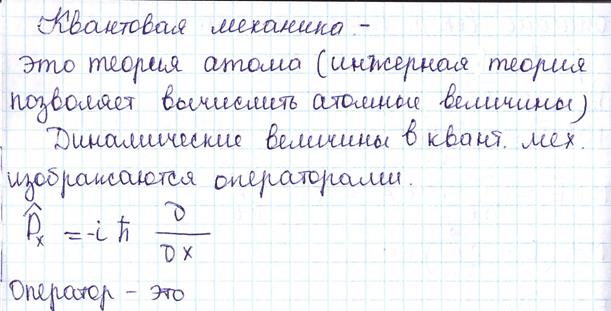 Квантовая механика -
это теория атома (инжерная теория
позволяет вычислить атомные величины)
Динамические величины в квант. мех.
изображаются операторами.
P̂x = -iħ ∂/∂x
Оператор - это